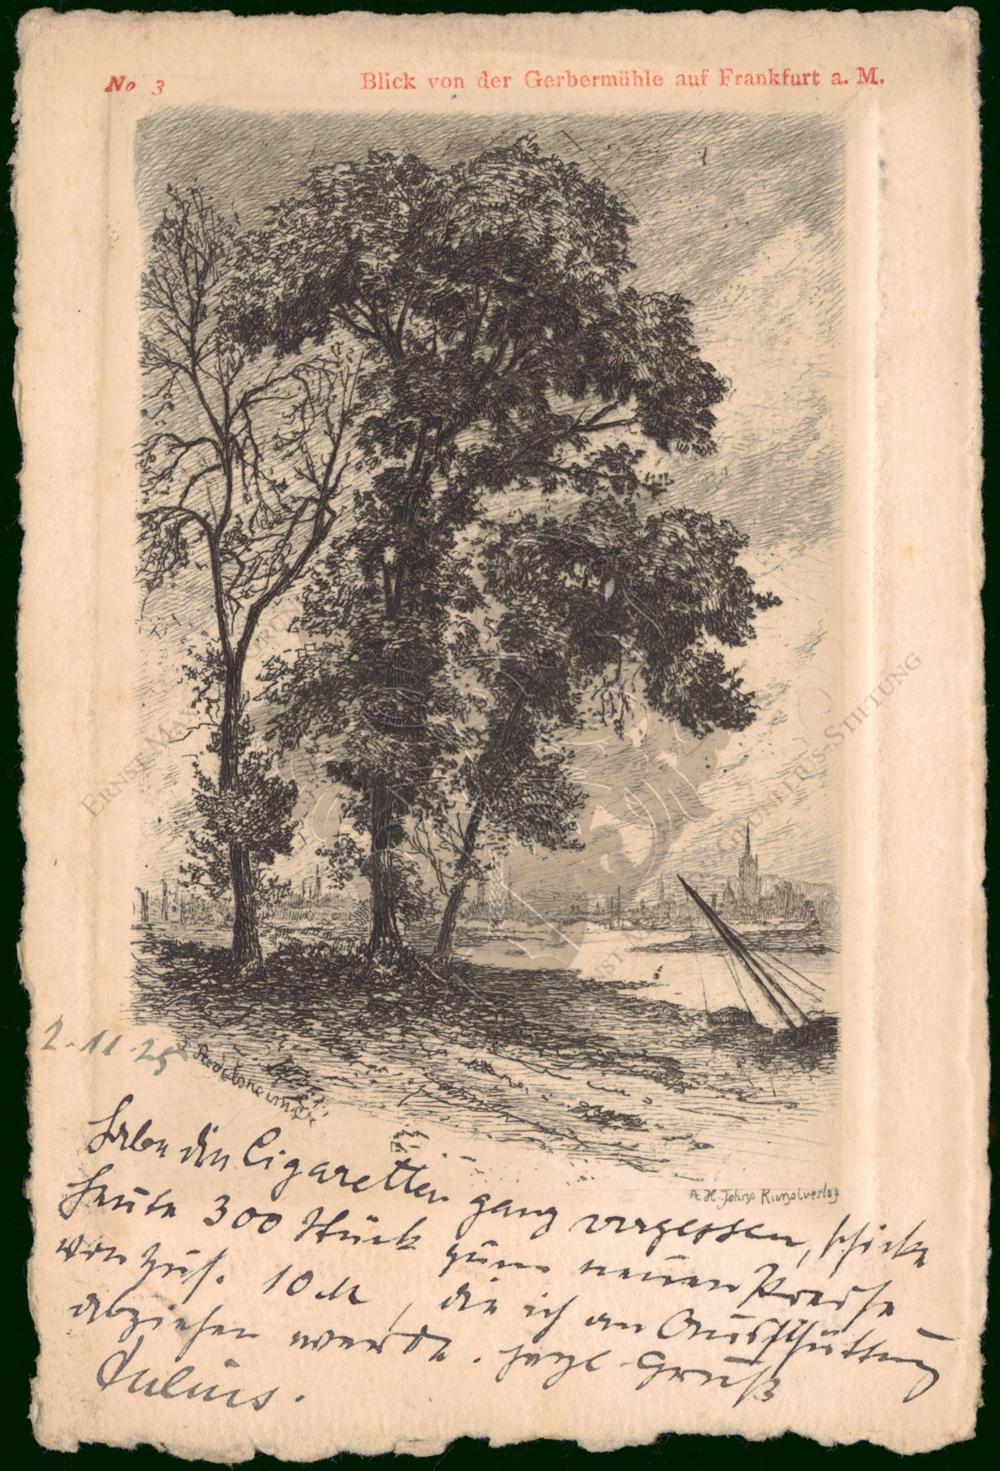 No 3
Blick von der Gerbermühle auf Frankfurt a. M.
2. 11. 25
Habe die Cigaretten ganz vergessen, schicke
heute 300 Stück zum neuen Preise
von zus. 10 M, die ich an Ausschüttung
abziehen werde. Herzl. Gruß
Julius.
A. H. Johns Kunstverlag
ERNST MAX
CORNELIUS-STIFTUNG